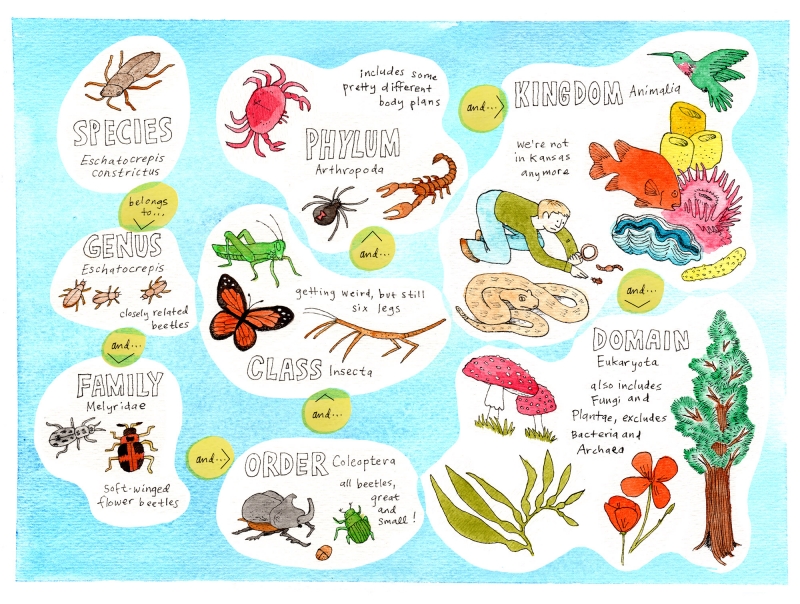 SPECIES
Eschatocrepis
constrictus
belongs
to...
GENUS
Eschatocrepis
closely related
beetles
and...
FAMILY
Melyridae
Soft-winged
flower beetles
and...
ORDER Coleoptera
all beetles,
great
and
small!
and...
getting weird, but still
six legs
CLASS Insecta
and...
includes some
pretty different
body plans
PHYLUM
Arthropoda
and...
KINGDOM Animalia
we're not
in Kansas
anymore
and...
DOMAIN
Eukaryota
also includes
Fungi and
Plantae, excludes
Bacteria and
Archaea